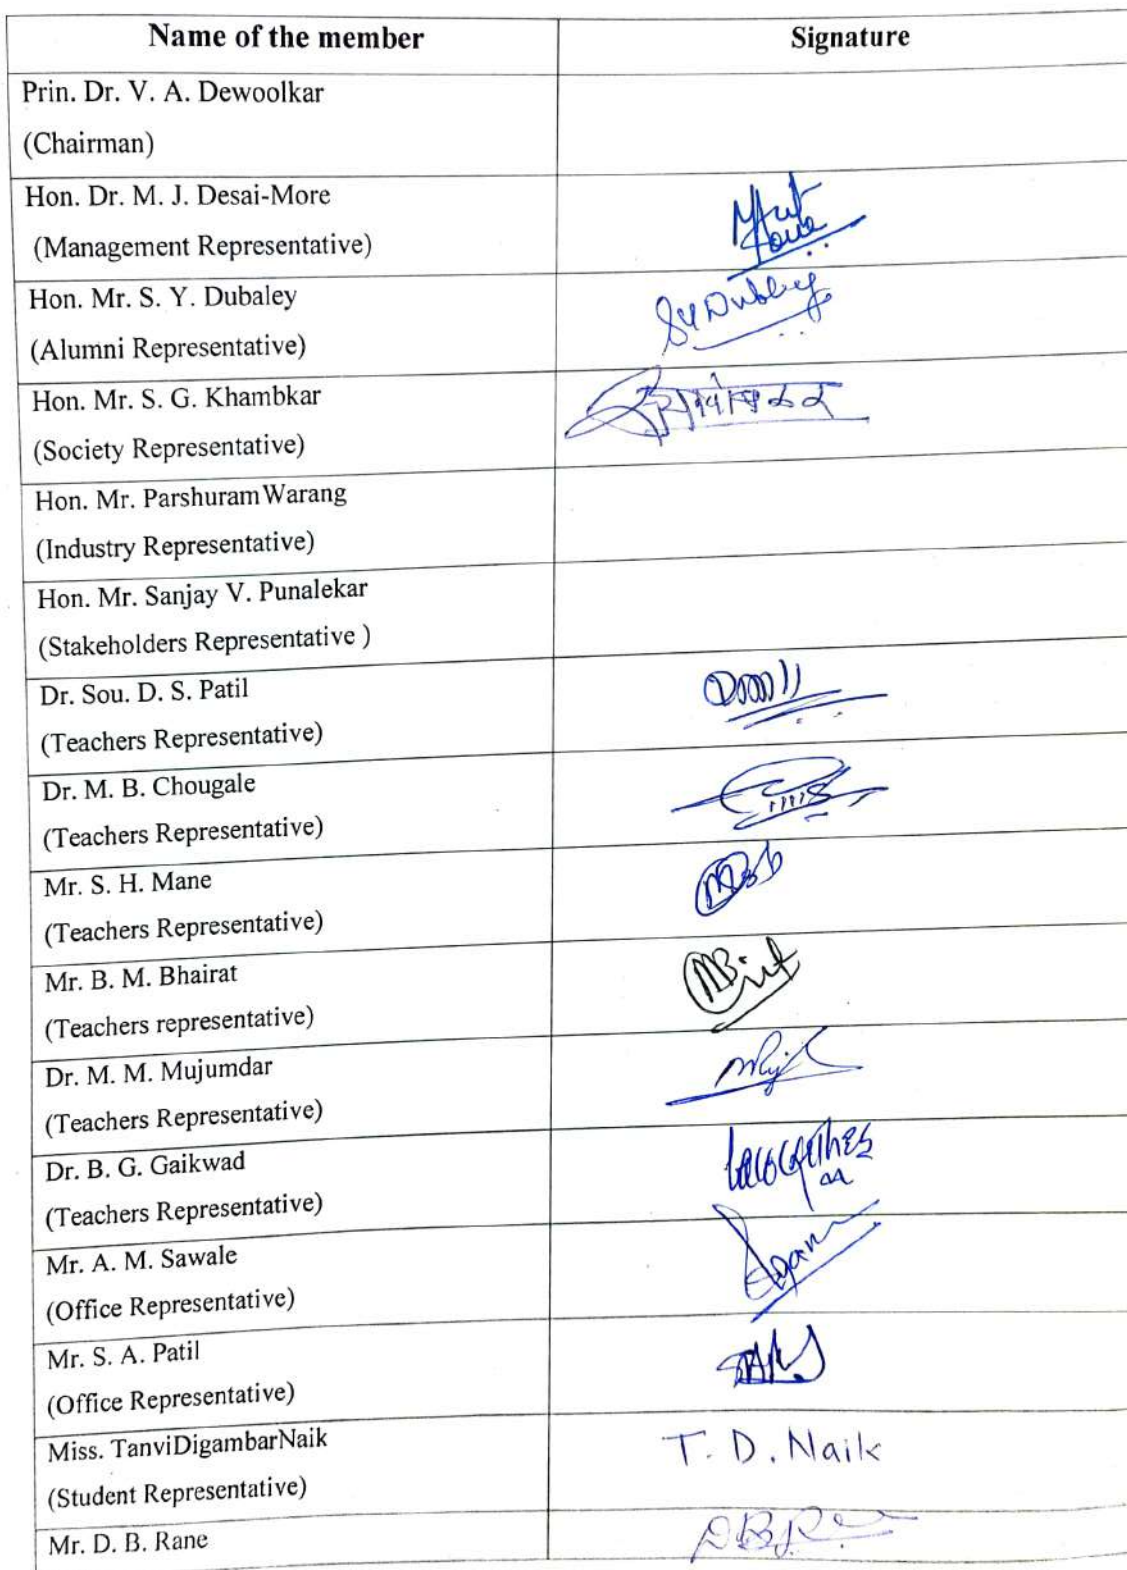 Name of the member Signature
Prin. Dr. V. A. Dewoolkar
(Chairman)
Hon. Dr. M. J. Desai-More
(Management Representative)
Hon. Mr. S. Y. Dubaley
SYDubley
(Alumni Representative)
Hon. Mr. S. G. Khambkar
(Society Representative)
Hon. Mr. Parshuram Warang
(Industry Representative)
Hon. Mr. Sanjay V. Punalekar
(Stakeholders Representative )
Dr. Sou. D. S. Patil
(Teachers Representative)
Dr. M. B. Chougale
(Teachers Representative)
Mr. S. H. Mane
(Teachers Representative)
Mr. B. M. Bhairat
(Teachers representative)
Dr. M. M. Mujumdar
(Teachers Representative)
Dr. B. G. Gaikwad
(Teachers Representative)
Mr. A. M. Sawale
(Office Representative)
Mr. S. A. Patil
(Office Representative)
Miss. TanviDigambarNaik T. D. Naik
(Student Representative)
Mr. D. B. Rane DBRane